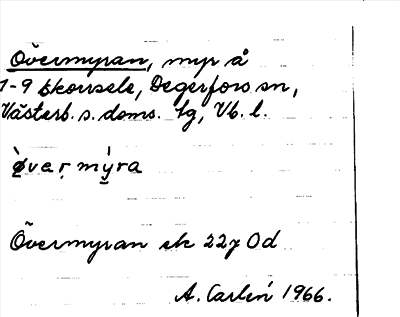 Övermyran, myr å
1-9 Ekorrsele, Degerfors sn,
Västerb. s. doms. lg, Vb. l.
ø̀veṛ mýra
Övermyran ek 22g 0d
A. Carlén 1966.